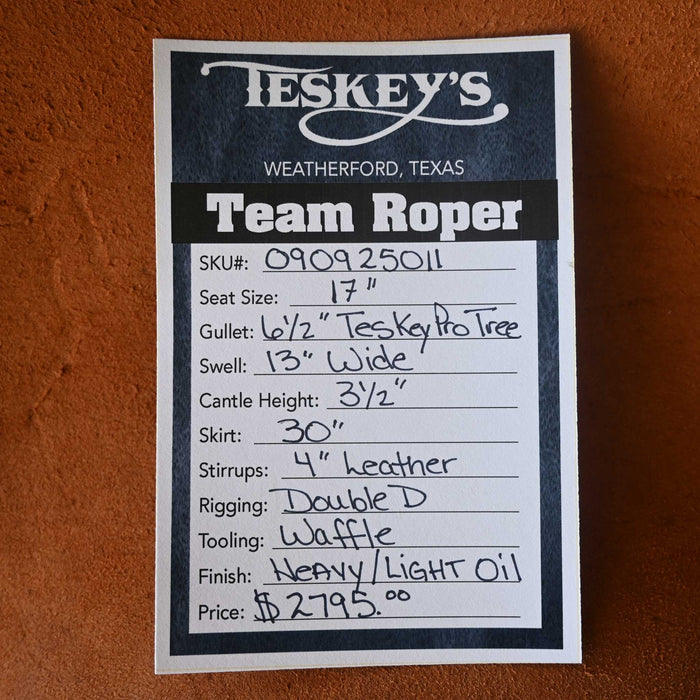 TESKEY'S
WEATHERFORD, TEXAS
Team Roper
SKU#: 090925011
Seat Size: 17"
Gullet: 6½" Teskey Pro Tree
Swell: 13" Wide
Cantle Height: 3½"
Skirt: 30"
Stirrups: 4" Leather
Rigging: Double D
Tooling: Waffle
Finish: Heavy/Light Oil
Price: $2795.00